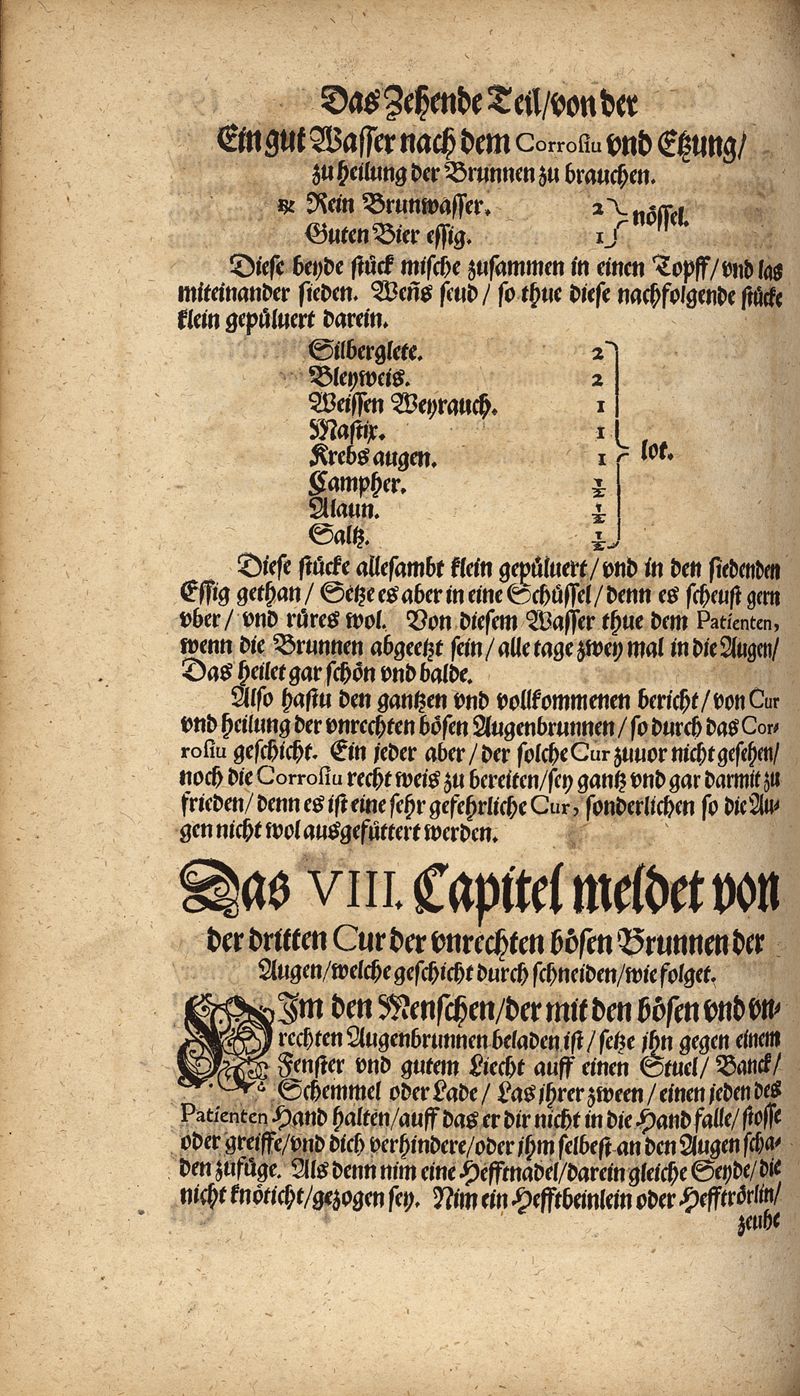 Das Zehende Teil/von der
Ein gut Wasser nach dem Corrosiu vnd Etzung/
zu heilung der Brunnen zu brauchen.
℞ Rein Brunwasser. 2
Guten Bier essig. 1 nössel.
Diese beyde stück mische zusammen in einen Topff/vnd las
miteinander sieden. Weñs seud/ so thue diese nachfolgende stücke
klein gepüluert darein.
Silberglete. 2
Bleyweis. 2
Weissen Weyrauch. 1
Mastix. 1
Krebs augen. 1 lot.
Campher. ½
Alaun. ½
Saltz. ½
Diese stücke allesambt klein gepüluert/vnd in den siedenden
Essig gethan/ Setze es aber in eine Schüssel/denn es scheust gern
vber/ vnd rüres wol. Von diesem Wasser thue dem Patienten,
wenn die Brunnen abgeetzt sein/alle tage zwey mal in die Augen/
Das heilet gar schön vnd balde.
Also hastu den gantzen vnd vollkommenen bericht/von Cur
vnd heilung der vnrechten bösen Augenbrunnen/so durch das Cor-
rosiu geschicht. Ein jeder aber/der solche Cur zuuor nicht gesehen/
noch die Corrosiu recht weis zu bereiten/sey gantz vnd gar darmit zu
frieden/denn es ist eine sehr gefehrliche Cur, sonderlichen so die Au-
gen nicht wol ausgefüttert werden.
Das VIII. Capitel meldet von
der dritten Cur der vnrechten bösen Brunnen der
Augen/welche geschicht durch schneiden/wie folget.
NIm den Menschen/der mit den bösen vnd vn-
rechten Augenbrunnen beladen ist/setze jhn gegen einem
Fenster vnd gutem Liecht auff einen Stuel/ Banck/
Schemmel oder Lade/ Las jhrer zween/einen jeden des
Patienten Hand halten/auff das er dir nicht in die Hand falle/stosse
oder greiffe/vnd dich verhindere/oder jhm selbest an den Augen scha-
den zufüge. Als denn nim eine Hefftnadel/darein gleiche Seyde/die
nicht knöticht/gezogen sey. Nim ein Hefftbeinlein oder Hefftrörlin/
zeuhe